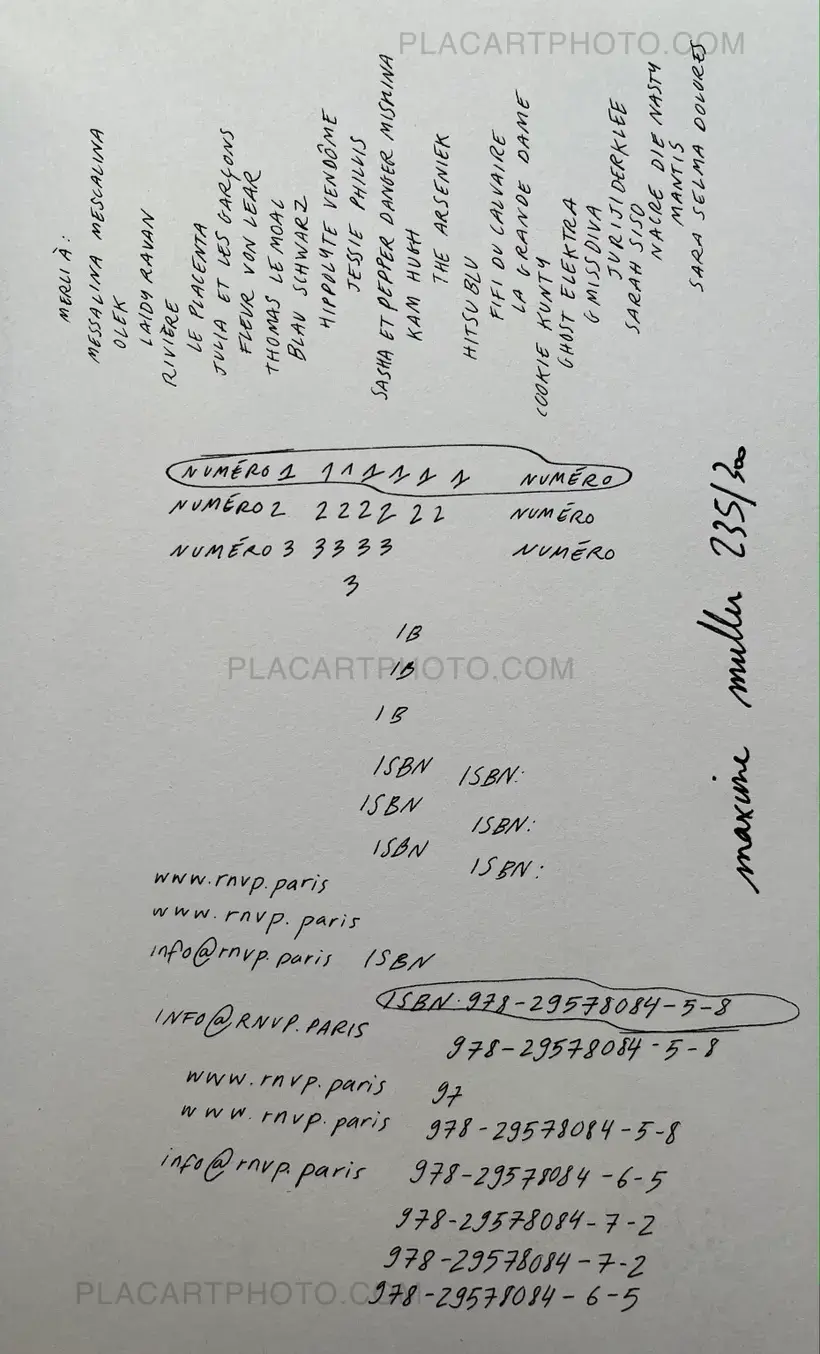 PLACARTPHOTO.COM
MERLI À:
MESSALINA MESCALINA
OLEK
LAIDY RAVAN
RIVIÈRE
LE PLACENTA
JULIA ET LES GARÇONS
FLEUR VON LEAR
THOMAS LE MOAL
BLAU SCHWARZ
HIPPOLYTE VENDÔME
JESSIE PHILLIS
SASHA ET PEPPER DANGER MISMINA
KAM HUGH
THE ARSENIEK
HITSU BLU
FIFI DU CALVAIRE
LA GRANDE DAME
COOKIE KUNTY
GHOST ELEKTRA
G MISSDIVA
JURIJI DERKLEE
SARAH SISO
NACRE DIE NASTY
MANTIS
SARA SELMA DOLORES
NUMÉRO 1 1 1 1 1 1 1 NUMÉRO
NUMÉRO 2 2 2 2 2 2 2 NUMÉRO
NUMÉRO 3 3 3 3 3 NUMÉRO
3
IB
PLACARTPHOTO.COM
IB
IB
ISBN ISBN:
ISBN
ISBN:
ISBN
ISBN:
maxime muller 235/300
www.rnvp.paris
www.rnvp.paris
info@rnvp.paris ISBN
ISBN: 978-29578084-5-8
INFO@RNVP.PARIS
978-29578084-5-8
www.rnvp.paris 97
www.rnvp.paris 978-29578084-5-8
info@rnvp.paris 978-29578084-6-5
978-29578084-7-2
978-29578084-7-2
PLACARTPHOTO.COM
978-29578084-6-5